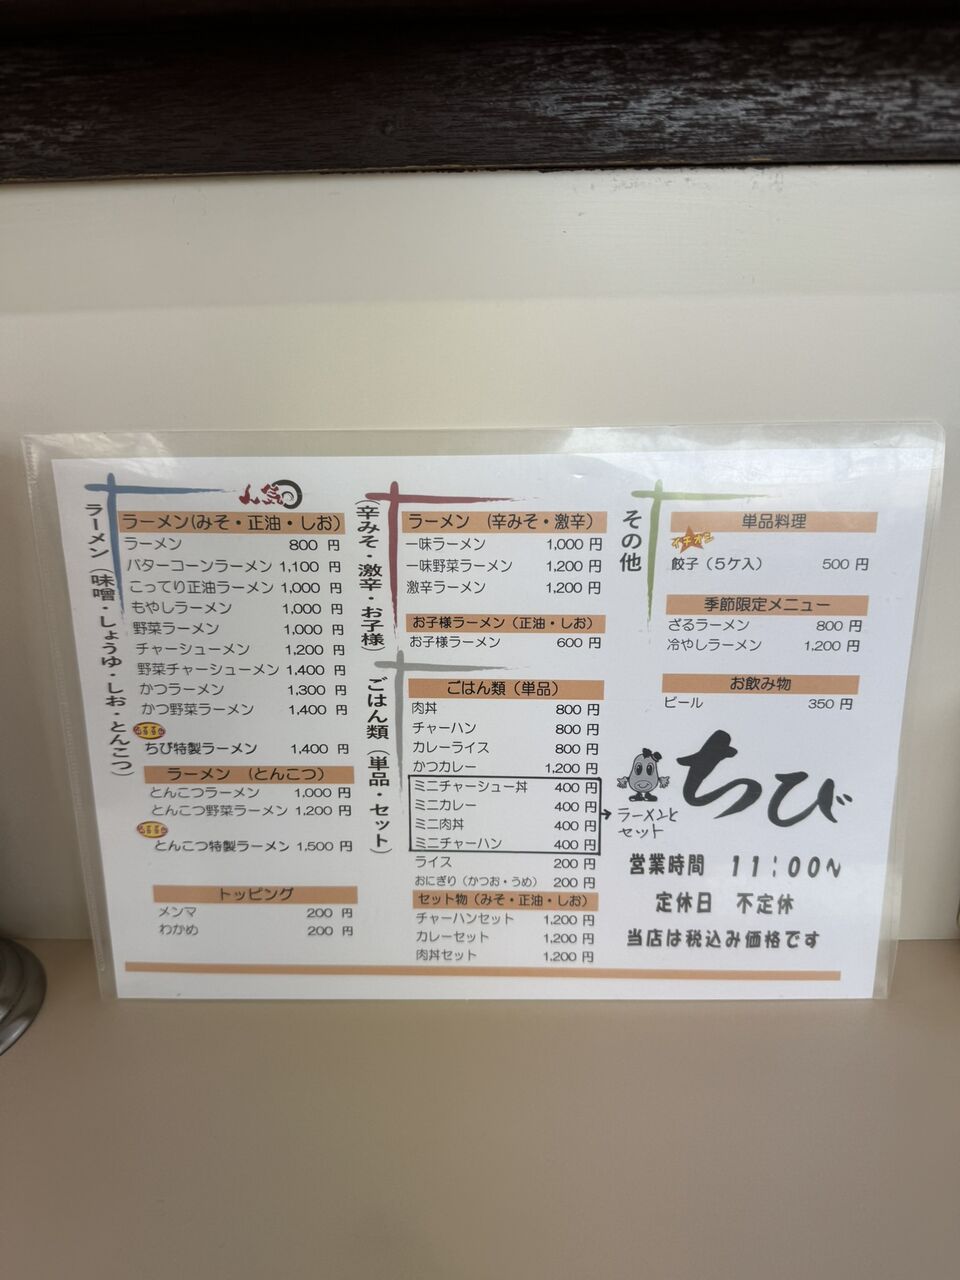 ラーメン（味噌・しょうゆ・しお・とんこつ）
人気
ラーメン(みそ・正油・しお)
ラーメン 800 円
バターコーンラーメン 1,100 円
こってり正油ラーメン 1,000 円
もやしラーメン 1,000 円
野菜ラーメン 1,000 円
チャーシューメン 1,200 円
野菜チャーシューメン 1,400 円
かつラーメン 1,300 円
かつ野菜ラーメン 1,400 円
ちび特製ラーメン 1,400 円
ラーメン （とんこつ）
とんこつラーメン 1,000 円
とんこつ野菜ラーメン 1,200 円
とんこつ特製ラーメン 1,500 円
トッピング
メンマ 200 円
わかめ 200 円
（辛みそ・激辛・お子様）
ラーメン （辛みそ・激辛）
一味ラーメン 1,000 円
一味野菜ラーメン 1,200 円
激辛ラーメン 1,200 円
お子様ラーメン（正油・しお）
お子様ラーメン 600 円
ごはん類（単品・セット）
ごはん類（単品）
肉丼 800 円
チャーハン 800 円
カレーライス 800 円
かつカレー 1,200 円
ミニチャーシュー丼 400 円
ミニカレー 400 円
ミニ肉丼 400 円
ミニチャーハン 400 円
→ラーメンと
セット
ライス 200 円
おにぎり（かつお・うめ） 200 円
セット物（みそ・正油・しお）
チャーハンセット 1,200 円
カレーセット 1,200 円
肉丼セット 1,200 円
その他
単品料理
イチオシ
餃子（５ケ入） 500 円
季節限定メニュー
ざるラーメン 800 円
冷やしラーメン 1,200 円
お飲み物
ビール 350 円
ちび
営業時間 11:00～
定休日 不定休
当店は税込み価格です